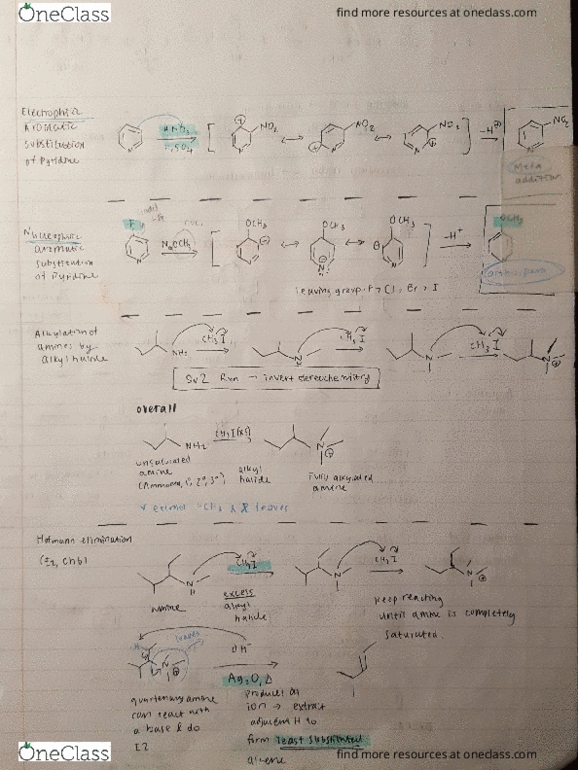 OneClass
find more resources at oneclass.com
Electrophilic
Aromatic
substitution
of Pyridine
HNO3
H2SO4
NO2
NO2
NO2
-H⊕
NO2
Meta
addition
Nucleophilic
aromatic
substitution
of Pyridine
F
NaOCH3
OCH3
OCH3
OCH3
-H+
OCH3
leaving group: F > Cl, Br > I
Alkylation of
amines by
alkyl halide
NH2
CH3I
N
H
CH3I
N
CH3I
N
SN2 Rxn → invert stereochemistry
overall
NH2
CH3I
N
unsaturated
amine
(Ammonia, 1°, 2°, 3°)
alkyl
halide
Fully alkylated
amine
leaves
Hofmann elimination
(E2,
N
H
CH3I
N
CH3I
N
amine
excess
alkyl
halide
keep reacting
until amine is completely
saturated.
leaves
OH-
N
Ag2O, Δ
quarternary amine
can react with
a base & do
E2
produces an
ion → extract
adjacent H to
form least substituted
alkene
OneClass
find more resources at oneclass.com